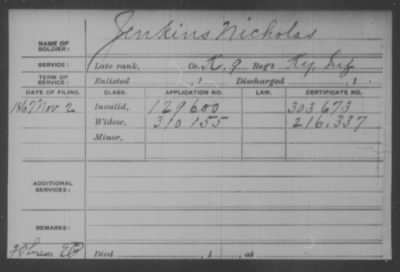 Jenkins Nicholas
NAME OF SOLDIER:
SERVICE: Late rank, Co. K, 9 Reg't Ky. Inf
TERM OF SERVICE: Enlisted , 1 Discharged , 1
DATE OF FILING. CLASS. APPLICATION NO. LAW. CERTIFICATE NO.
1867 Nov 2 Invalid, 129600 303673
Widow, 310155 216,337
Minor,
ADDITIONAL SERVICES:
REMARKS:
Died , 1 , at